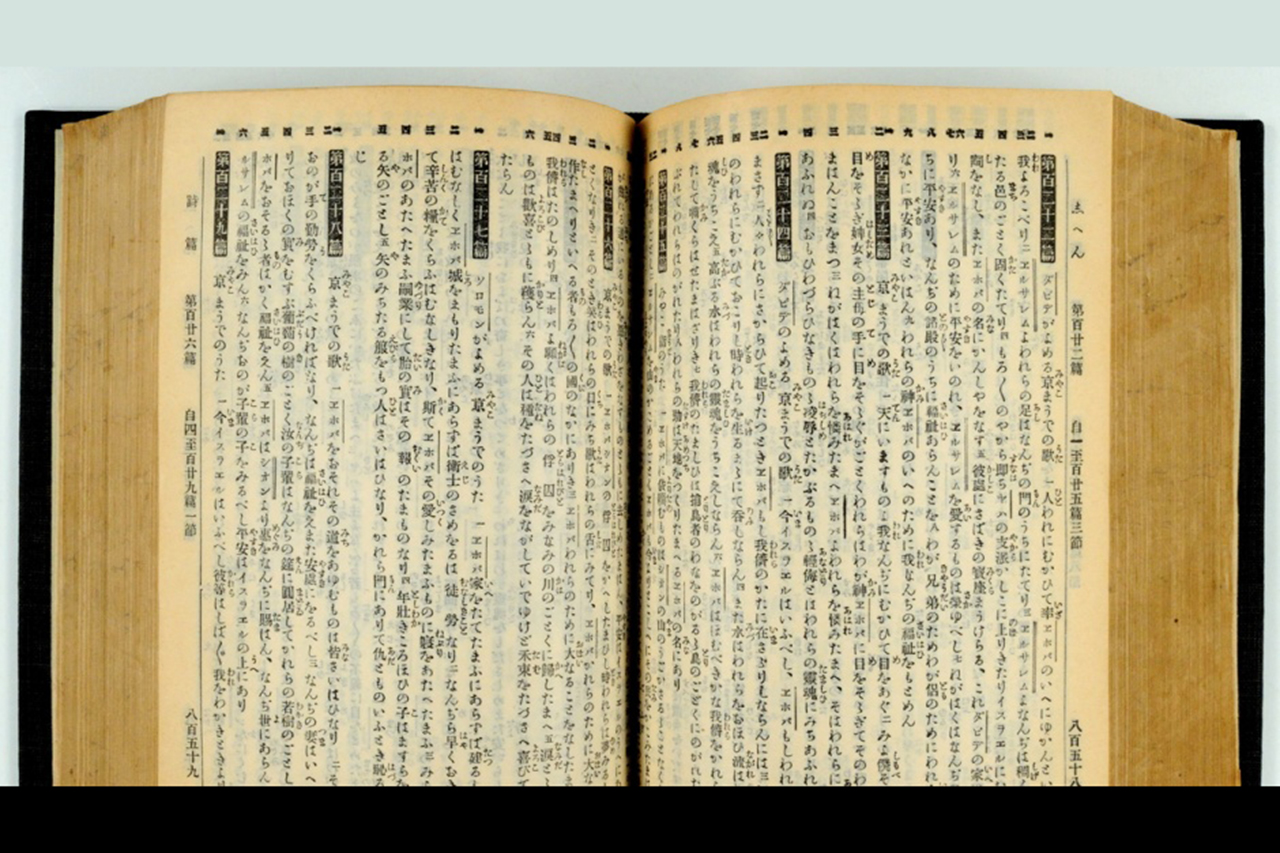 志へん 第百廿二篇 自一至百廿五篇三節 八百五十八
第百二十二篇 ダビデがよめる京まうでの歌 一人われにむかひて率ヱホバのいへにゆかんとい
我よろこべり二ヱルサレムよわれらの足はなんぢの門のうちにたてり三ヱルサレムよなんぢは稠く
たる邑のごとく固くたてり四もろ〱のやから即ちヤハの支派かしこに上りきたりイスラエルに
陶をなし、またヱホバの名にかんしやをなす五彼處にさばきの寳座まうけらる、これダビデの家
り六ヱルサレムのために平安をいのれ、ヱルサレムを愛するものは榮ゆべし七ねがはくはなんぢ
ちに平安あり、なんぢの諸殿のうちに福祉あらんことを八わが兄弟のためわが侶のためにわれ
なかに平安あれといはん九われらの神ヱホバのいへのために我なんぢの福祉をもとめん
第百二十三篇 京まうでの歌 一天にいますものよ我なんぢにむかひて目をあぐ二みよ僕そ
目をそゝぎ婢女その主母の手に目をそゝぐがごとくわれらはわが神ヱホバに目をそゝぎてそのわ
まはんことをまつ三ねがはくはわれらを憐みたまへヱホバよわれらを憐みたまへ、そはわれらに
あふれぬ四おもひわづらひなきものゝ凌辱とたかぶるものゝ輕侮とはわれらの靈魂にみちあふれ
第百二十四篇 ダビデのよめる京まうでの歌 一今イスラエルはいふべし、ヱホバもしわれ
まさず二人々われらにさからひて起りたつときヱホバもし我儕のかたに在さゞりしならんには三
のわれらにむかひておこりし時われらを生るまゝにて呑しならん四また水はわれらをおほひ流は
魂をうちこえ五高ぶる水はわれらの靈魂をうちこえしならん六ヱホバはほむべきかな我儕をかれ
たして嚙くらはせたまはざりき七我儕のたましひは捕鳥者のわなをのがるゝ鳥のごとくにのがれた
ぶれてわれらはのがれたり八われらの助は天地をつくりたまへるヱホバの名にあり
第百二十五篇
第百二十六篇 京まうでの歌
ごとくなりき二そのとき笑はわれらの口にみち歌はわれらの舌にみてり、ヱホバかれらのために大な
作たまへりといへる者もろ〱の國のなかにありき三ヱホバわれらのために大なることをなした
我儕はたのしめり四ヱホバよ願くはわれらの俘囚をみなみの川のごとくに歸したまへ五涙と
ものは歡喜とともに穫らん六その人は種をたづさへ涙をながしていでゆけど禾束をたづさへ喜びて
たらん
第百二十七篇 ソロモンがよめる京まうでのうた 一ヱホバ家をたてたまふにあらずば建る
はむなしくヱホバ城をまもりたまふにあらずば衞士のさめをるは徒勞なり二なんぢら早くおき
て辛苦の糧をくらふはむなしきなり、斯てヱホバその愛しみたまふものに寢をあたへたまふ三み
ホバのあたへたまふ嗣業にして胎の實はその報のたまものなり四年壯きころほひの子はますらを
る矢のごとし五矢のみちたる箙をもつ人はさいはひなり、かれら門にありて仇とものいふとき恥
じ
第百二十八篇 京まうでの歌 一ヱホバをおそれその道をあゆむものは皆さいはひなり二そ
おのが手の勤勞をくらふべければなり、なんぢは福祉をえまた安處にをるべし三なんぢの妻はいへ
りておほくの實をむすぶ葡萄の樹のごとく汝の子輩はなんぢの筵に圓居してかれらの若樹のごとし
ホバをおそるゝ者はかく福祉をえん五ヱホバはシオンより惠をなんぢに賜はん、なんぢ世にあらん
ルサレムの福祉をみん六なんぢおのが子輩の子をみるべし平安はイスラエルの上にあり
第百二十九篇 京まうでのうた 一今イスラエルはいふべし彼等はしば〱我をわかきときより
詩篇 第百廿六篇 自四至百廿九篇一節 八百五十九